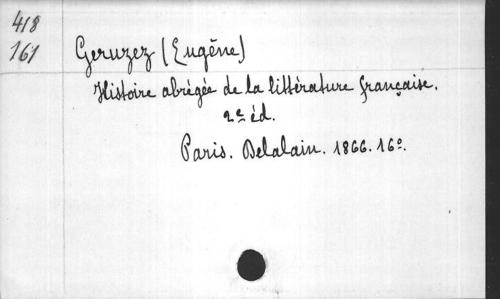 418
161
Geruzez (Eugène)
Histoire abrégée de la littérature française.
2e éd.
Paris. Delalain. 1866. 16º.